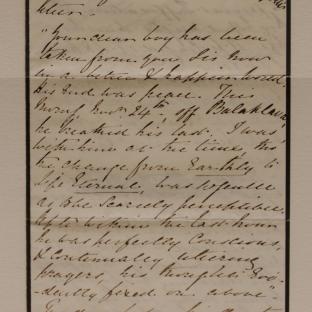 "Your dear boy has been
taken from you & is now
in a better & happier world.
His End was peace. This
Morng Novr 24th, off Balaklava
he breathed his last. I was
with him at the time, &
the change from Earthly to
life Eternal, was so gentle
as to be scarcely perceptible.
Up to within the last hour
he was perfectly Conscious,
& continually uttering
prayers, his thoughts Evi-
-dently fixed on above"-